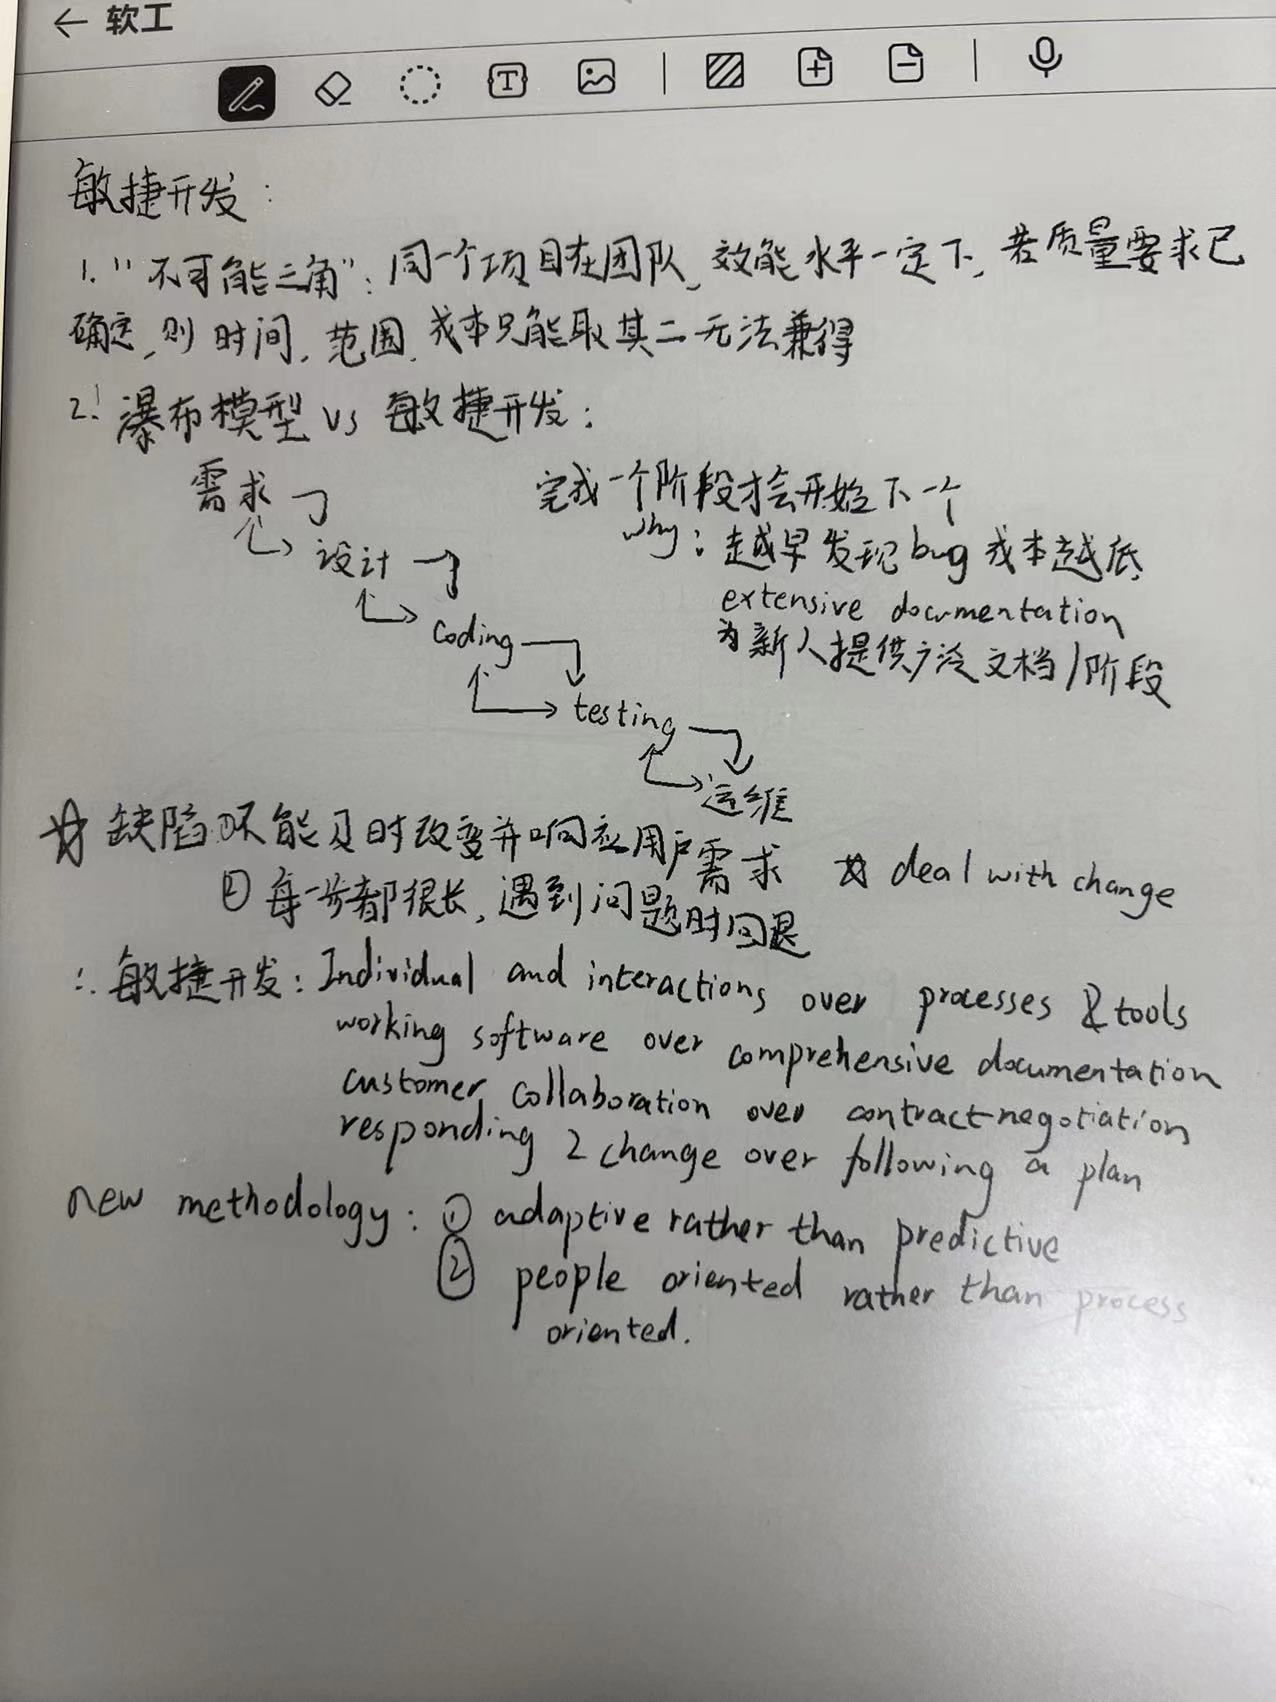 ← 软工
敏捷开发：
1. “不可能三角”：同一个项目在团队、效能水平一定下，若质量要求已
确定，则时间，范围，成本只能取其二无法兼得
2. 瀑布模型 vs 敏捷开发：
需求
完成一个阶段才会开始下一个
why：越早发现bug成本越低
设计
extensive documentation
coding
为新人提供广泛文档/阶段
testing
运维
☆ 缺陷①不能及时改变并响应用户需求 ☆ deal with change
② 每一步都很长，遇到问题时回退
∴ 敏捷开发：Individual and interactions over processes & tools
working software over comprehensive documentation
customer collaboration over contract negotiation
responding 2 change over following a plan
new methodology: ① adaptive rather than predictive
② people oriented rather than process
oriented.